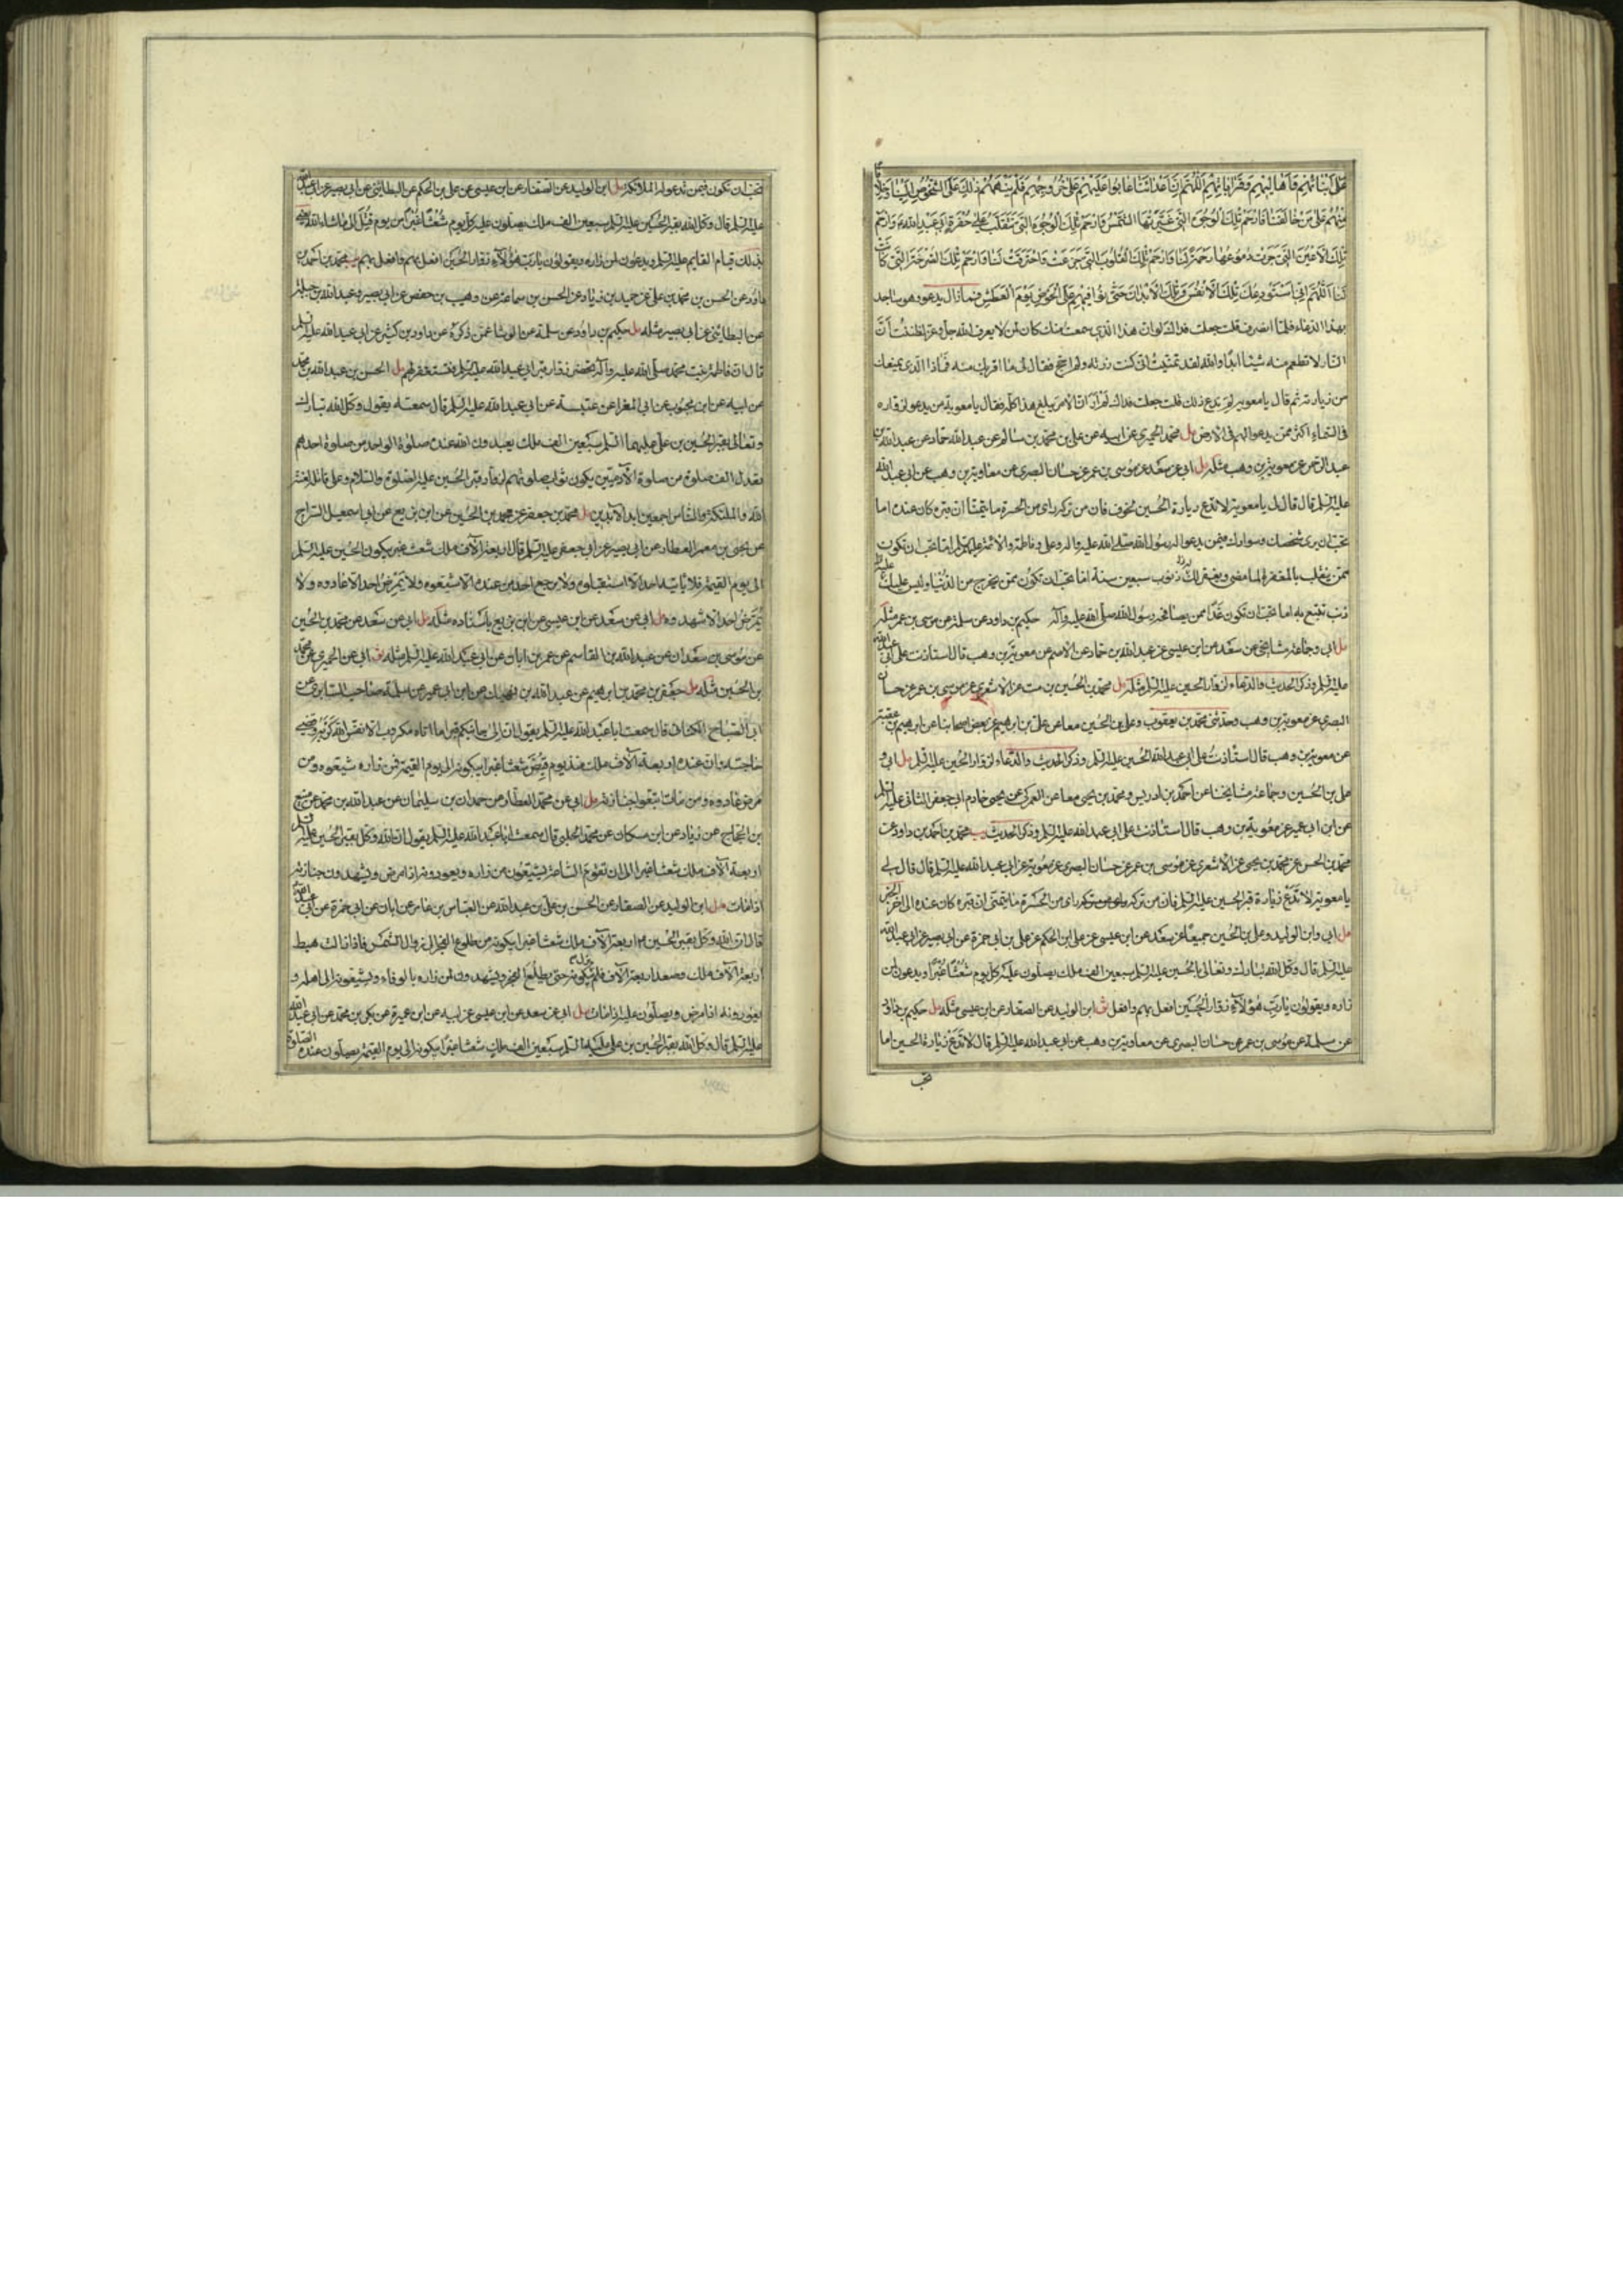 على أبنائهم وأهاليهم وقراباتهم اللهم إن أعدائنا عابوا عليهم على خروجهم فلم ينههم ذلك على الشخوص إلينا وخلافا
منهم على من خالفنا فارحم تلك الوجوه التي غيرتها الشمس فارحم تلك الوجوه التي تتقلب على حفرة أبي عبد الله وارحم
تلك الأعين التي جرت دموعها رحمة لنا وارحم تلك القلوب التي جزعت واحترقت لنا وارحم تلك الصرخة التي كانت
لنا اللهم إني أستودعك تلك الأنفس وتلك الأبدان حتى توافيهم على الحوض يوم العطش فما زال يدعو وهو ساجد
بهذا الدعاء فلما انصرف قلت جعلت فداك لو ان هذا الذي سمعت منك كان لمن لا يعرف الله جل وعز لظننت أن
النار لا تطعم منه شيئا ابدا والله لقد تمنيت اني كنت زرته ولم احج فقال لي ما اقربك منه فما ذا الذي يمنعك
من زيارته ثم قال يا معوية لم تدع ذلك قلت جعلت فداك لم أر ان الامر يبلغ هذا كله فقال يا معوية من يدعو لزواره
في السماء اكثر ممن يدعو لهم في الارض مل محمد الحميري عن ابيه عن علي بن محمد بن سالم عن عبد الله حماد عن عبد الله بن
عبد الرحمن عن معوية بن وهب مثله مل ابي عن سعد عن موسى بن عمر عن حسان البصري عن معاوية بن وهب عن ابي عبد الله
عليه السلم قال قال لي يا معوية لا تدع زيارة الحسين لخوف فان من تركه راى من الحسرة ما يتمنا ان قبره كان عنده اما
تحب ان يرى شخصك وسوادك فيمن يدعو له رسول الله صلى الله عليه واله وعلي وفاطمة والائمة عليهم السلم اما تحب ان تكون
ممن ينقلب بالمغفرة لما مضى ويغفر لك ذنوب سبعين سنة اما تحب ان تكون ممن يخرج من الدنيا وليس عليك
ذنب تتبع به اما تحب ان تكون غدا ممن يصافحه رسول الله صلى الله عليه وآله حكيم بن داود عن سلمة عن موسى بن عمر مثله
مل ابي وجماعة مشايخي عن سعد عن ابن عيسى عن عبد الله بن حماد عن الاصم عن معوية بن وهب قال استاذنت على ابي عبد الله
عليه السلم وذكر الحديث والدعاء لزوار الحسين عليه السلم مثله مل محمد بن الحسين بن مت عن الاشعري عن موسى بن عمر عن حسان
البصري عن معوية بن وهب وحدثني محمد بن يعقوب وعلي بن الحسين معا عن علي بن ابراهيم عن بعض اصحابنا عن ابراهيم بن عقبة
عن معوية بن وهب قال استاذنت على ابي عبد الله الحسين عليه السلم وذكر الحديث والدعاء لزوار الحسين عليه السلم مل ابي و
علي بن الحسين وجماعة مشايخنا عن احمد بن ادريس ومحمد بن يحيى معا عن العمركي عن يحيى خادم ابي جعفر الثاني عليه السلم
عن ابن ابي عمير عن معوية بن وهب قال استاذنت على ابي عبد الله عليه السلم وذكر الحديث يب محمد بن احمد بن داود عن
محمد بن الحسن عن محمد بن يحيى عن الاشعري عن موسى بن عمر عن حسان البصري عن معوية عن ابي عبد الله عليه السلم قال قال لي
يا معوية لا تدع زيارة قبر الحسين عليه السلم فان من تركه راى من الحسرة ما يتمنى ان قبره كان عنده الى اخر الخبر
مل ابي وابن الوليد وعلي بن الحسين جميعا عن سعد عن ابن عيسى عن علي ابن الحكم عن علي بن ابي حمزة عن ابي بصير عن ابي عبد الله
عليه السلم قال وكل الله تبارك وتعالى بالحسين عليه السلم سبعين الف ملك يصلون عليه كل يوم شعثا غبرا ويدعون لمن
زاره ويقولون يا رب هؤلاء زوار الحسين افعل بهم وافعل ثو ابن الوليد عن الصفار عن ابن عيسى مثله مل حكيم بن داود
عن سلمة عن موسى بن عمر عن حسان البصري عن معاوية بن وهب عن ابي عبد الله عليه السلم قال لا تدع زيارة الحسين اما
تحب
تحب ان تكون فيمن تدعو له الملائكة مل ابن الوليد عن الصفار عن ابن عيسى عن علي بن الحكم عن البطائني عن ابي بصير عن ابي عبد الله
عليه السلم قال وكل الله بقبر الحسين عليه السلم سبعين الف ملك يصلون عليه كل يوم شعثا غبرا من يوم قتل الى ما شاء الله يعني
بذلك قيام القايم عليه السلم ويدعون لمن زاره ويقولون يا رب هؤلاء زوار الحسين افعل بهم وافعل بهم يب محمد بن احمد بن
داود عن الحسن بن محمد بن علي عن حميد بن زياد عن الحسن بن سماعة عن وهيب بن حفص عن ابي بصير وعبد الله بن جبلة
عن البطائني عن ابي بصير مثله مل حكيم بن داود عن سلمة عن الوشا عمن ذكره عن داود بن كثير عن ابي عبد الله عليه السلم
قال ان فاطمة بنت محمد صلى الله عليه وآله تحضر زوار قبر ابي عبد الله عليه السلم فتستغفر لهم مل الحسن بن عبد الله بن محمد
عن ابيه عن ابن محبوب عن ابي المغرا عن عنبسة عن ابي عبد الله عليه السلم قال سمعته يقول وكل الله تبارك
وتعالى بقبر الحسين بن علي عليهما السلم سبعين الف ملك يعبدون الله عنده صلوة الواحد من صلوة احدهم
تعدل الف صلوة من صلوة الآدميين يكون ثواب صلوتهم لزوار قبر الحسين عليه الصلوة والسلام وعلى قاتله لعنة
الله والملئكة والناس اجمعين ابد الآبدين مل محمد بن جعفر عن محمد بن الحسين عن ابن بزيع عن ابي اسمعيل السراج
عن يحيى بن معمر العطار عن ابي بصير عن ابي جعفر عليه السلم قال اربعة الآف ملك شعث غبر يبكون الحسين عليه السلم
الى يوم القيمة فلا ياتيه احد الا استقبلوه ولا يرجع احد من عنده الا شيعوه ولا يمرض احد الا عادوه ولا
يموت احد الا شهدوه مل ابي عن سعد عن ابن عيسى عن ابن بزيع باسناده مثله مل ابي عن سعد عن محمد بن الحسين
عن موسى بن سعدان عن عبد الله بن القاسم عن عمر بن ابان عن ابي عبد الله عليه السلم مثله ثو ابي عن الحميري عن محمد
بن الحسين مثله مل جعفر بن محمد بن ابراهيم عن عبد الله بن نهيك عن ابن ابي عمير عن سلمة صاحب السابري عن
ابي الصباح الكناني قال سمعت ابا عبد الله عليه السلم يقول ان الى جانبكم قبرا ما اتاه مكروب الا نفس الله كربته وقضى
حاجته وان عنده اربعة الآف ملك منذ يوم قبض شعثا غبرا يبكونه الى يوم القيمة فمن زاره شيعوه ومن
مرض عادوه ومن مات تبعوا جنازته مل ابي عن محمد العطار عن حمدان بن سليمان عن عبد الله بن محمد عن منيع
بن الحجاج عن زياد عن ابن مسكان عن محمد الحلبي قال سمعت ابا عبد الله عليه السلم يقول ان الله وكل بقبر الحسين عليه السلم
اربعة آلاف ملك شعثا غبرا الى ان تقوم الساعة يشيعون من زاره ويعودونه اذا مرض ويشهدون جنازته
اذا مات مل ابن الوليد عن الصفار عن الحسن بن علي بن عبد الله عن العباس بن عامر عن ابان عن ابي حمزة عن ابي عبد الله
قال ان الله وكل بقبر الحسين اربعة آلاف ملك شعثا غبرا يبكونه من طلوع الفجر الى زوال الشمس فاذا زالت هبط
اربعة آلاف ملك وصعد اربعة آلاف فلم يزل يبكونه حتى يطلع الفجر ويشهدون لمن زاره بالوفاء ويشيعونه الى اهله و
يعودونه اذا مرض ويصلون عليه اذا مات مل ابي عن سعد عن ابن عيسى عن ابيه عن ابن عميرة عن بكر بن محمد عن ابي عبد الله
عليه السلم قال وكل الله بقبر الحسين بن علي عليهما السلم سبعين الف ملك شعثا غبرا يبكونه الى يوم القيمة يصلون عنده الصلوة